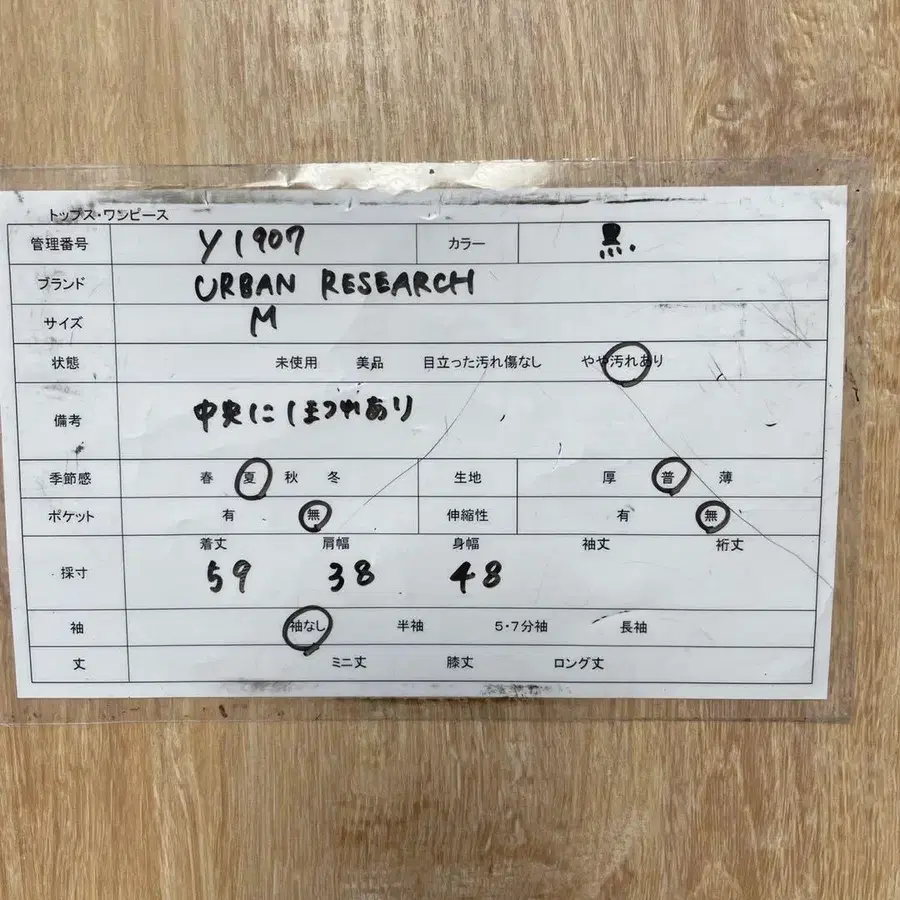 トップス・ワンピース
管理番号 Y1907 カラー 黒.
ブランド URBAN RESEARCH
サイズ M
状態 未使用 美品 目立った汚れ傷なし やや汚れあり
備考 中央にほつれあり
季節感 春 夏 秋 冬 生地 厚 普 薄
ポケット 有 無 伸縮性 有 無
着丈 肩幅 身幅 袖丈 裄丈
採寸 59 38 48
袖 袖なし 半袖 5・7分袖 長袖
丈 ミニ丈 膝丈 ロング丈